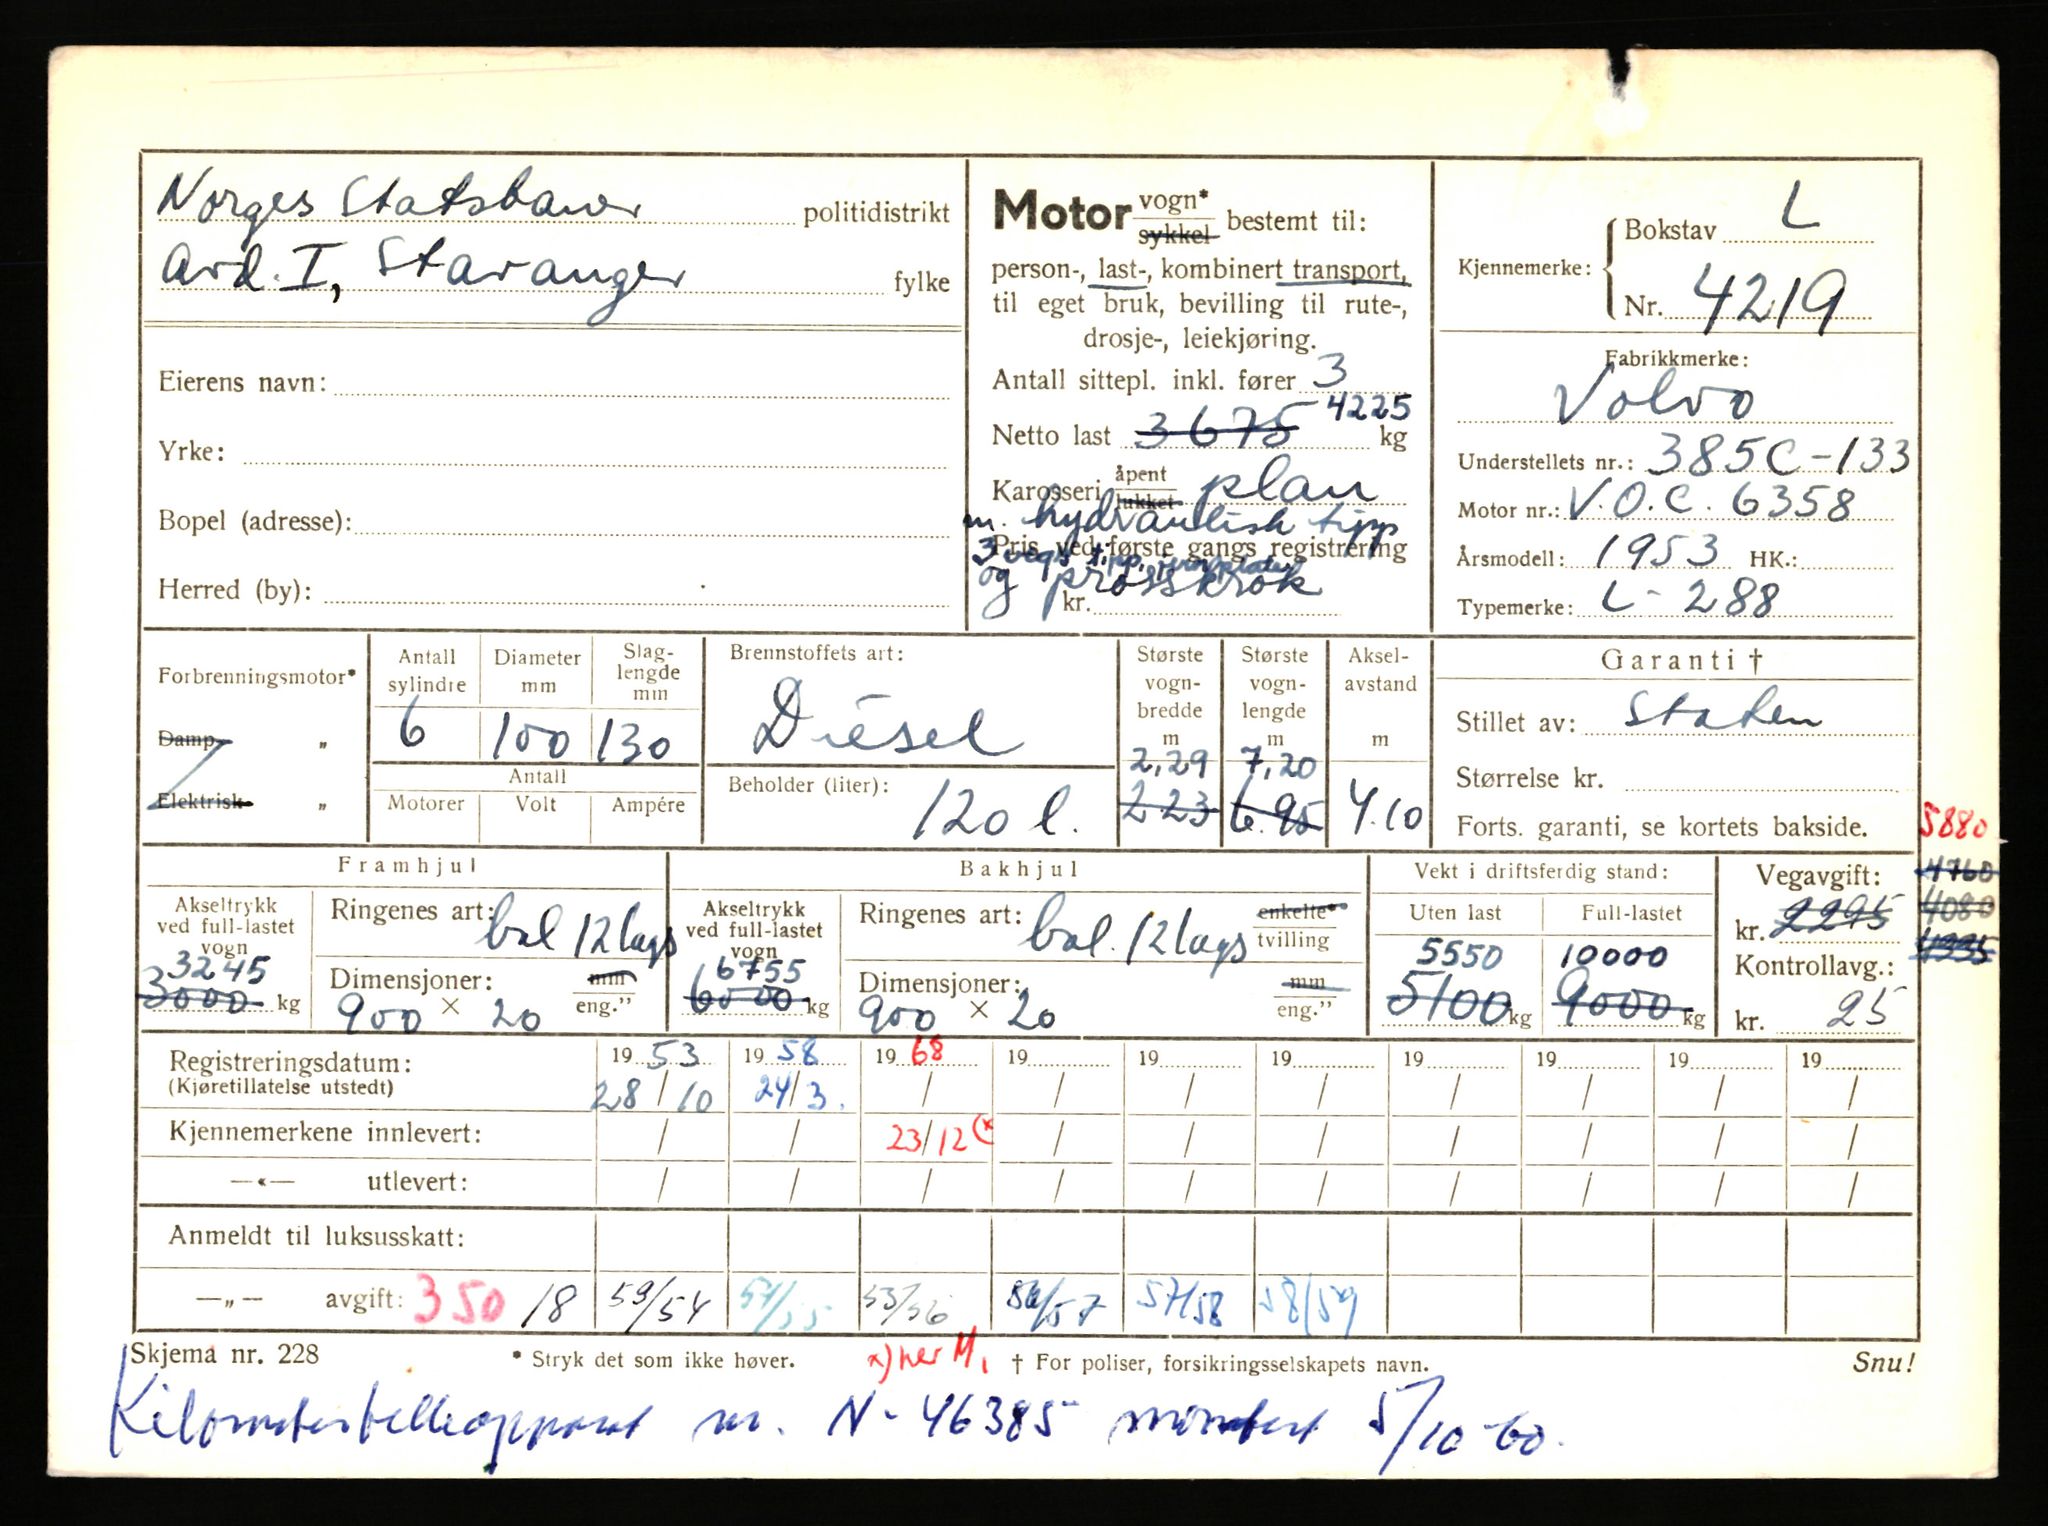 Norges Statsbaner politidistrikt
Avd. I, Stavanger fylke
Eierens navn:
Yrke:
Bopel (adresse):
Herred (by):
Motor vogn* sykkel bestemt til:
person-, last-, kombinert transport,
til eget bruk, bevilling til rute-,
drosje-, leiekjøring.
Antall sittepl. inkl. fører 3
Netto last 3675 4225 kg
Karosseri åpent lukket plan
m. hydraulisk tipp
Pris ved første gangs registrering
3 vegs tipp,
og
kr.
Kjennemerke:
Bokstav L
Nr. 4219
Fabrikkmerke:
Volvo
Understellets nr.: 385C-133
Motor nr.: V.O.C. 6358
Årsmodell: 1953 HK.:
Typemerke: L-288
Forbrenningsmotor*
Damp- „
Elektrisk- „
Antall sylindre 6
Diameter mm 100
Slag-lengde mm 130
Antall
Motorer Volt Ampére
Brennstoffets art:
Diesel
Beholder (liter):
120 l.
Største vogn-bredde m 2,29 2.23
Største vogn-lengde m 7,20 6.95
Aksel-avstand m 4.10
Garanti †
Stillet av: Staten
Størrelse kr.
Forts. garanti, se kortets bakside.
Framhjul
Akseltrykk ved full-lastet vogn 3245 3000 kg
Ringenes art: bal 12 lags
Dimensjoner: mm eng.”
900 × 20
Bakhjul
Akseltrykk ved full-lastet vogn 6755 6000 kg
Ringenes art: bal. 12 lags enkelte* tvilling
Dimensjoner: mm eng.”
900 × 20
Vekt i driftsferdig stand:
Uten last Full-lastet
5550 10000
5100 kg 9000 kg
Vegavgift:
kr. 2295
5880
4760
4080
4335
Kontrollavg.:
kr. 25
Registreringsdatum: 19 53 19 58 19 68 19 19 19 19 19 19 19
(Kjøretillatelse utstedt) 28/10 24/3. / / / / / / / /
Kjennemerkene innlevert: / / 23/12 (x / / / / / / /
—«— utlevert: / / / / / / / / / /
Anmeldt til luksusskatt:
—„— avgift: 350 /8 53/54 54/55 55/56 56/57 57/58 58/59
Skjema nr. 228 * Stryk det som ikke høver. x) † For poliser, forsikringsselskapets navn. Snu!
Kilometertelleapparat nr. N-46385 montert 5/10-60.